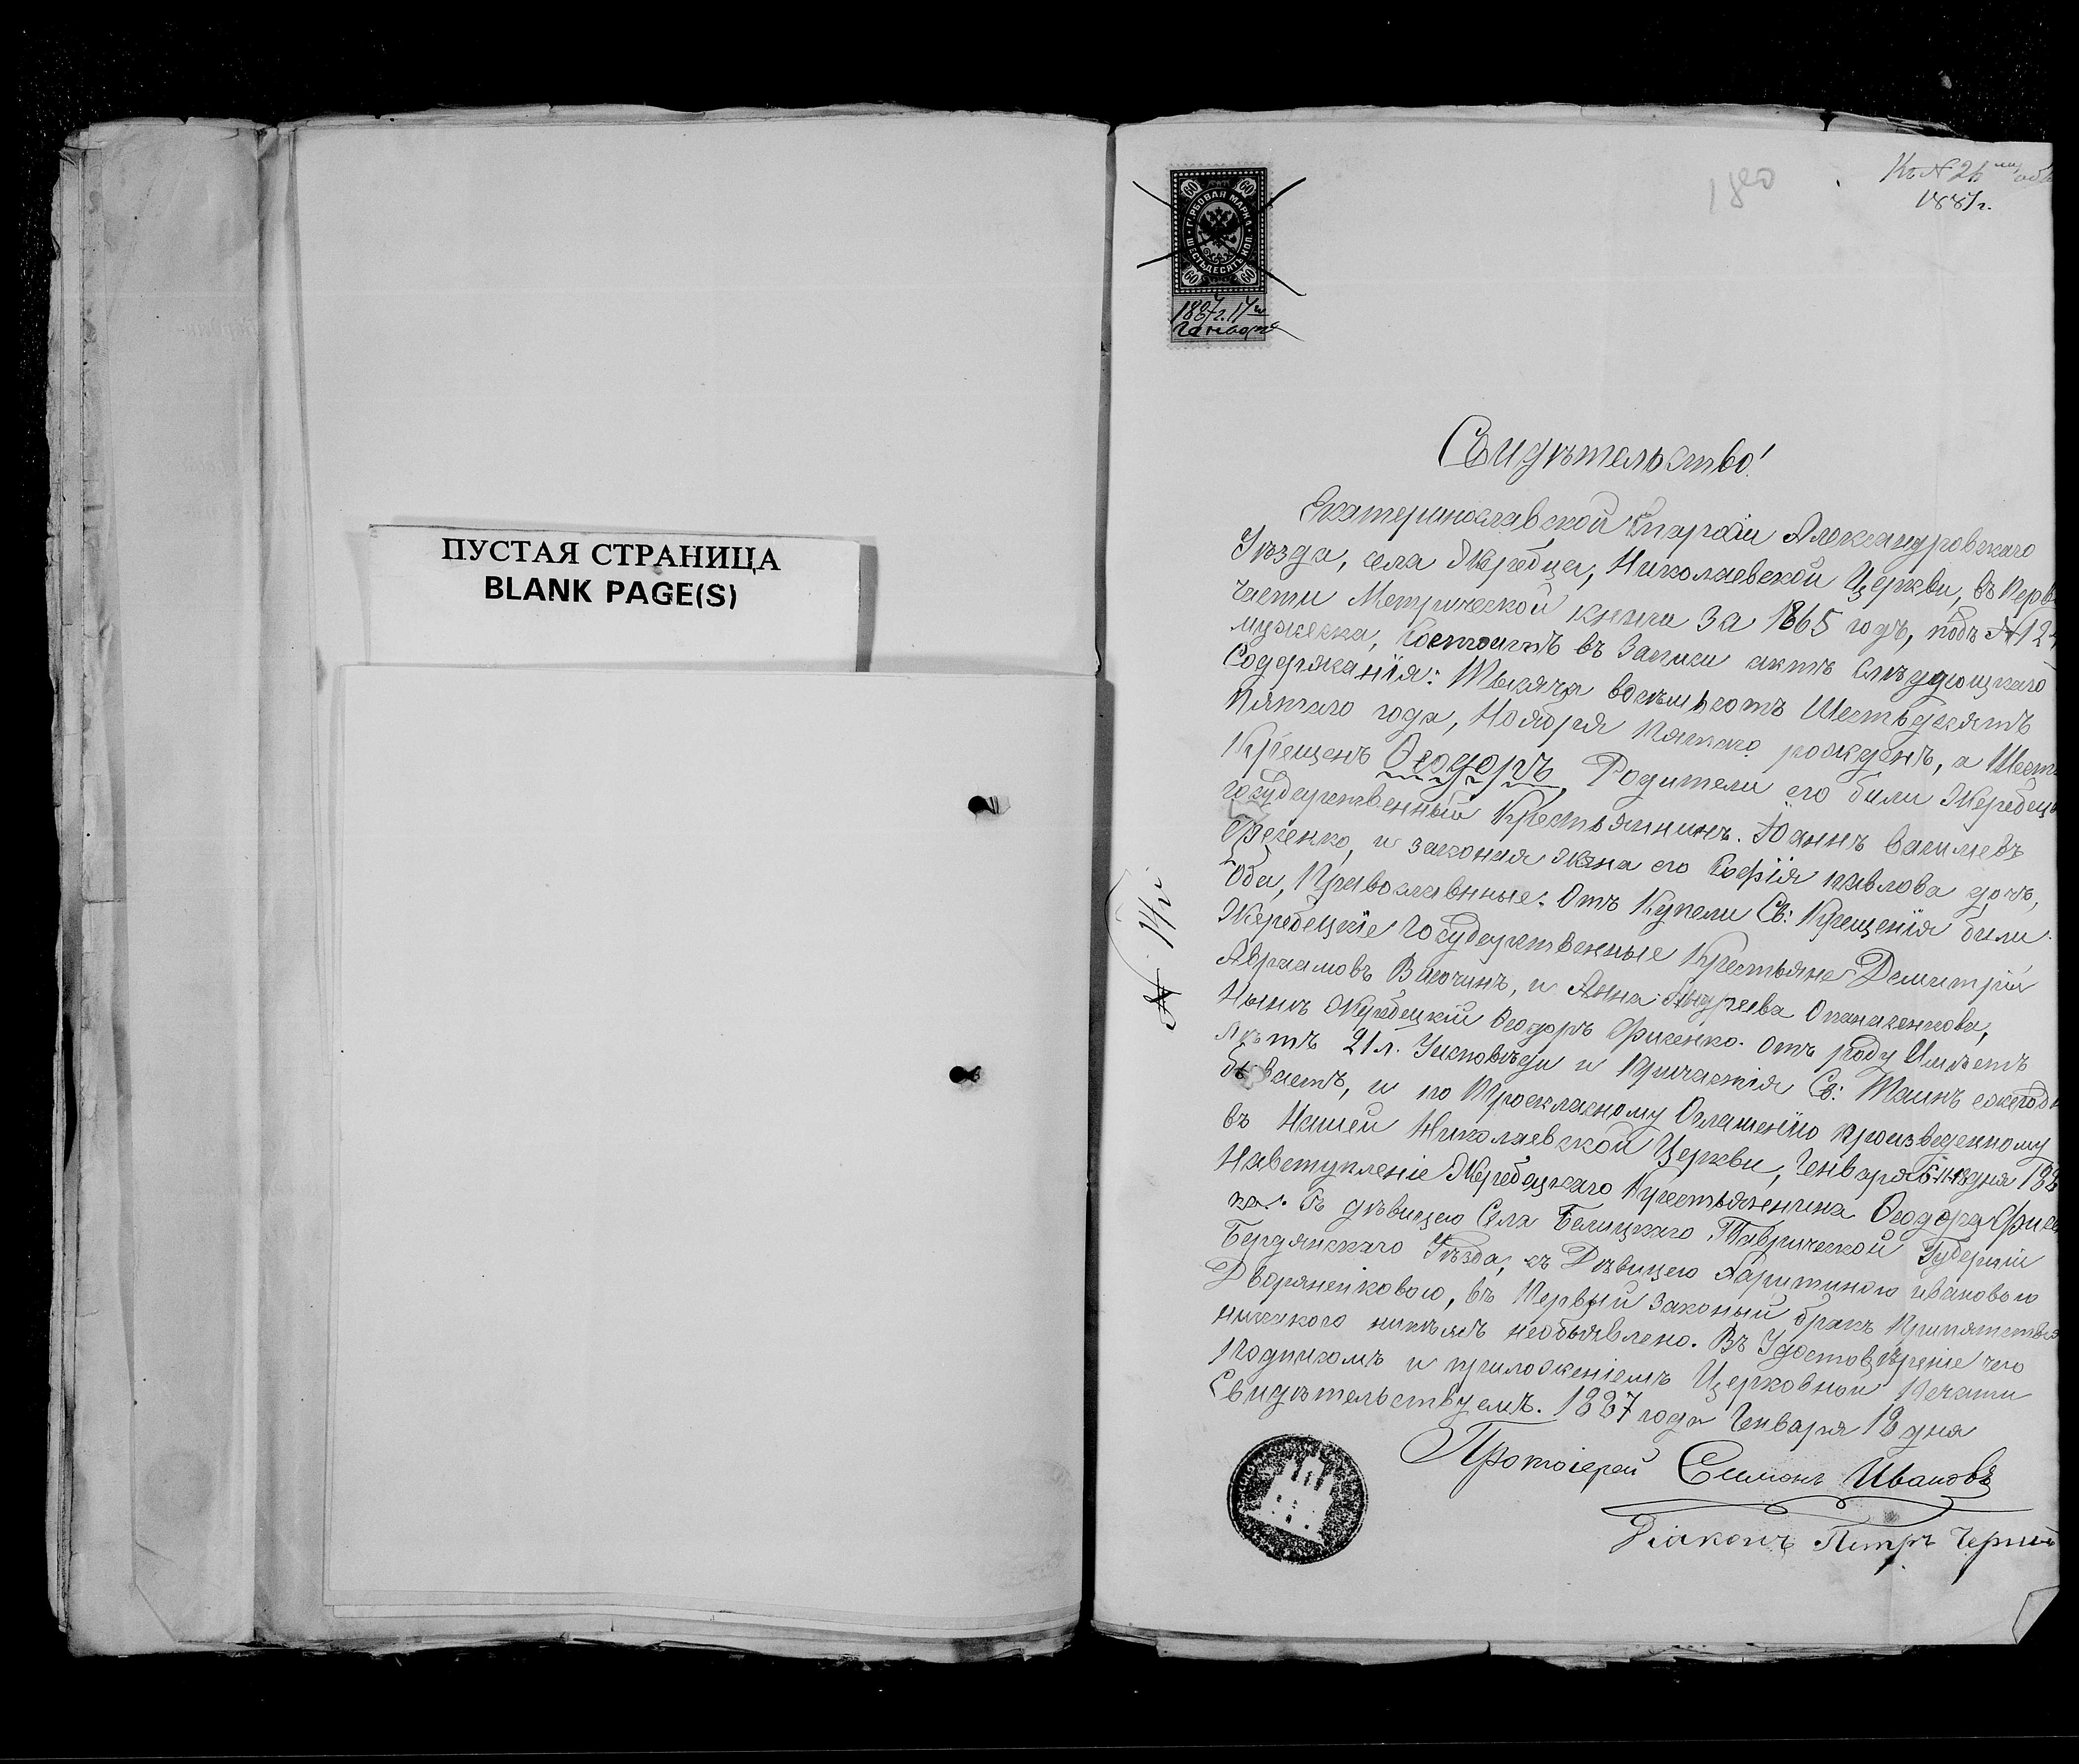 ПУСТАЯ СТРАНИЦА
BLANK PAGE(S)
180
Къ № 26
1887 г.
60 60
ГЕРБОВАЯ МАРКА
ШЕСТЬДЕСЯТЪ КОП.
60 60
1887 г. 17
Генваря
Свидѣтельство!
Екатеринославской Епархіи Александровскаго
Уѣзда, села Жеребца, Николаевской Церкви, въ Перв
части Метрической книги за 1865 годъ, подъ № 12
мужеска, Состоитъ въ Записи актъ Слѣдующаго
Содержанія: Тысяча восьмьсотъ Шестьдесятъ
Пятаго года, Ноября Пятаго рожденъ, а Шест
Крещенъ Ѳеодоръ. Родители его были Жеребец
государственный Крестьянинъ. Іоаннъ Василіевъ
Фисенко, и законая жена его Софія павлова дочь,
Оба, Православные: Отъ Купели Св: Крещенія были
Жеребецкіе Государственные Крестьяне Димитрій
Авраамовъ Височинъ, и Анна Андреева Опанасенкова,
Нынѣ Жеребецкій Ѳеодоръ Фисенко. отъ роду Имѣетъ
лѣтъ 21 л. Уисповѣди и Причастія Св: Таинъ ежегодн
бываетъ, и по Троекласному Оглашенію произведенному
въ Нашей Николаевской Церкви, Генваря дня 188
Навступленіе Жеребецкаго Крестьяненина Ѳеодора Фисе
ка: Съ дѣвицею Села Бѣлицкаго, Таврической Губерніи
Бердянскаго Уѣзда, съ Дѣвицею Харитиною ивановою
Дворяненковою, въ Первый Законый бракъ Припятствія
никакого никѣмъ необъявлено. Въ Удостовѣреніе чего
Подписомъ и приложеніемъ Церковной Печати
Свидѣтельствуемъ. 1887 года Генваря 18 дня
Протоіерей Симонъ Ивановъ
Діаконъ Петръ Черный